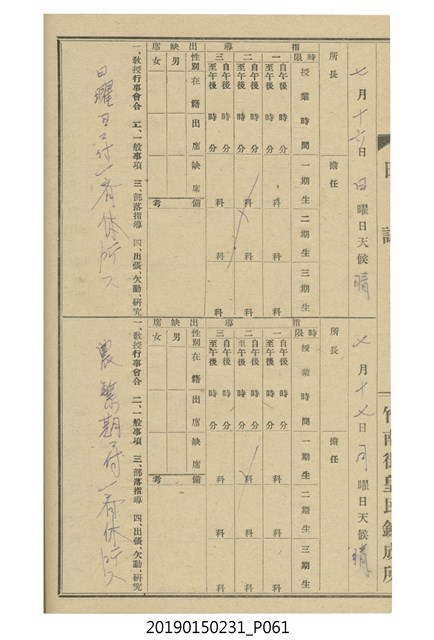 日誌
竹南街皇民鍊成所
七月十六日 日曜日天候 晴
所長 擔任
指導
時限 授業時間 一期生 二期生 三期生
一 自午後 時 分 至午後 時 分 科 科 科
二 自午後 時 分 至午後 時 分 科 科 科
三 自午後 時 分 至午後 時 分 科 科 科
出缺席
性別 在籍 出席 缺席 備考
男
女
一、教授行事會合 二、一般事項 三、部落指導 四、出張、欠勤、研究
日曜日ニ付一齊休所ス
七月十七日 月曜日天候 晴
所長 擔任
指導
時限 授業時間 一期生 二期生 三期生
一 自午後 時 分 至午後 時 分 科 科 科
二 自午後 時 分 至午後 時 分 科 科 科
三 自午後 時 分 至午後 時 分 科 科 科
出缺席
性別 在籍 出席 缺席 備考
男
女
一、教授行事會合 二、一般事項 三、部落指導 四、出張、欠勤、研究
農繁期ニ付一齊休所ス
20190150231_P061